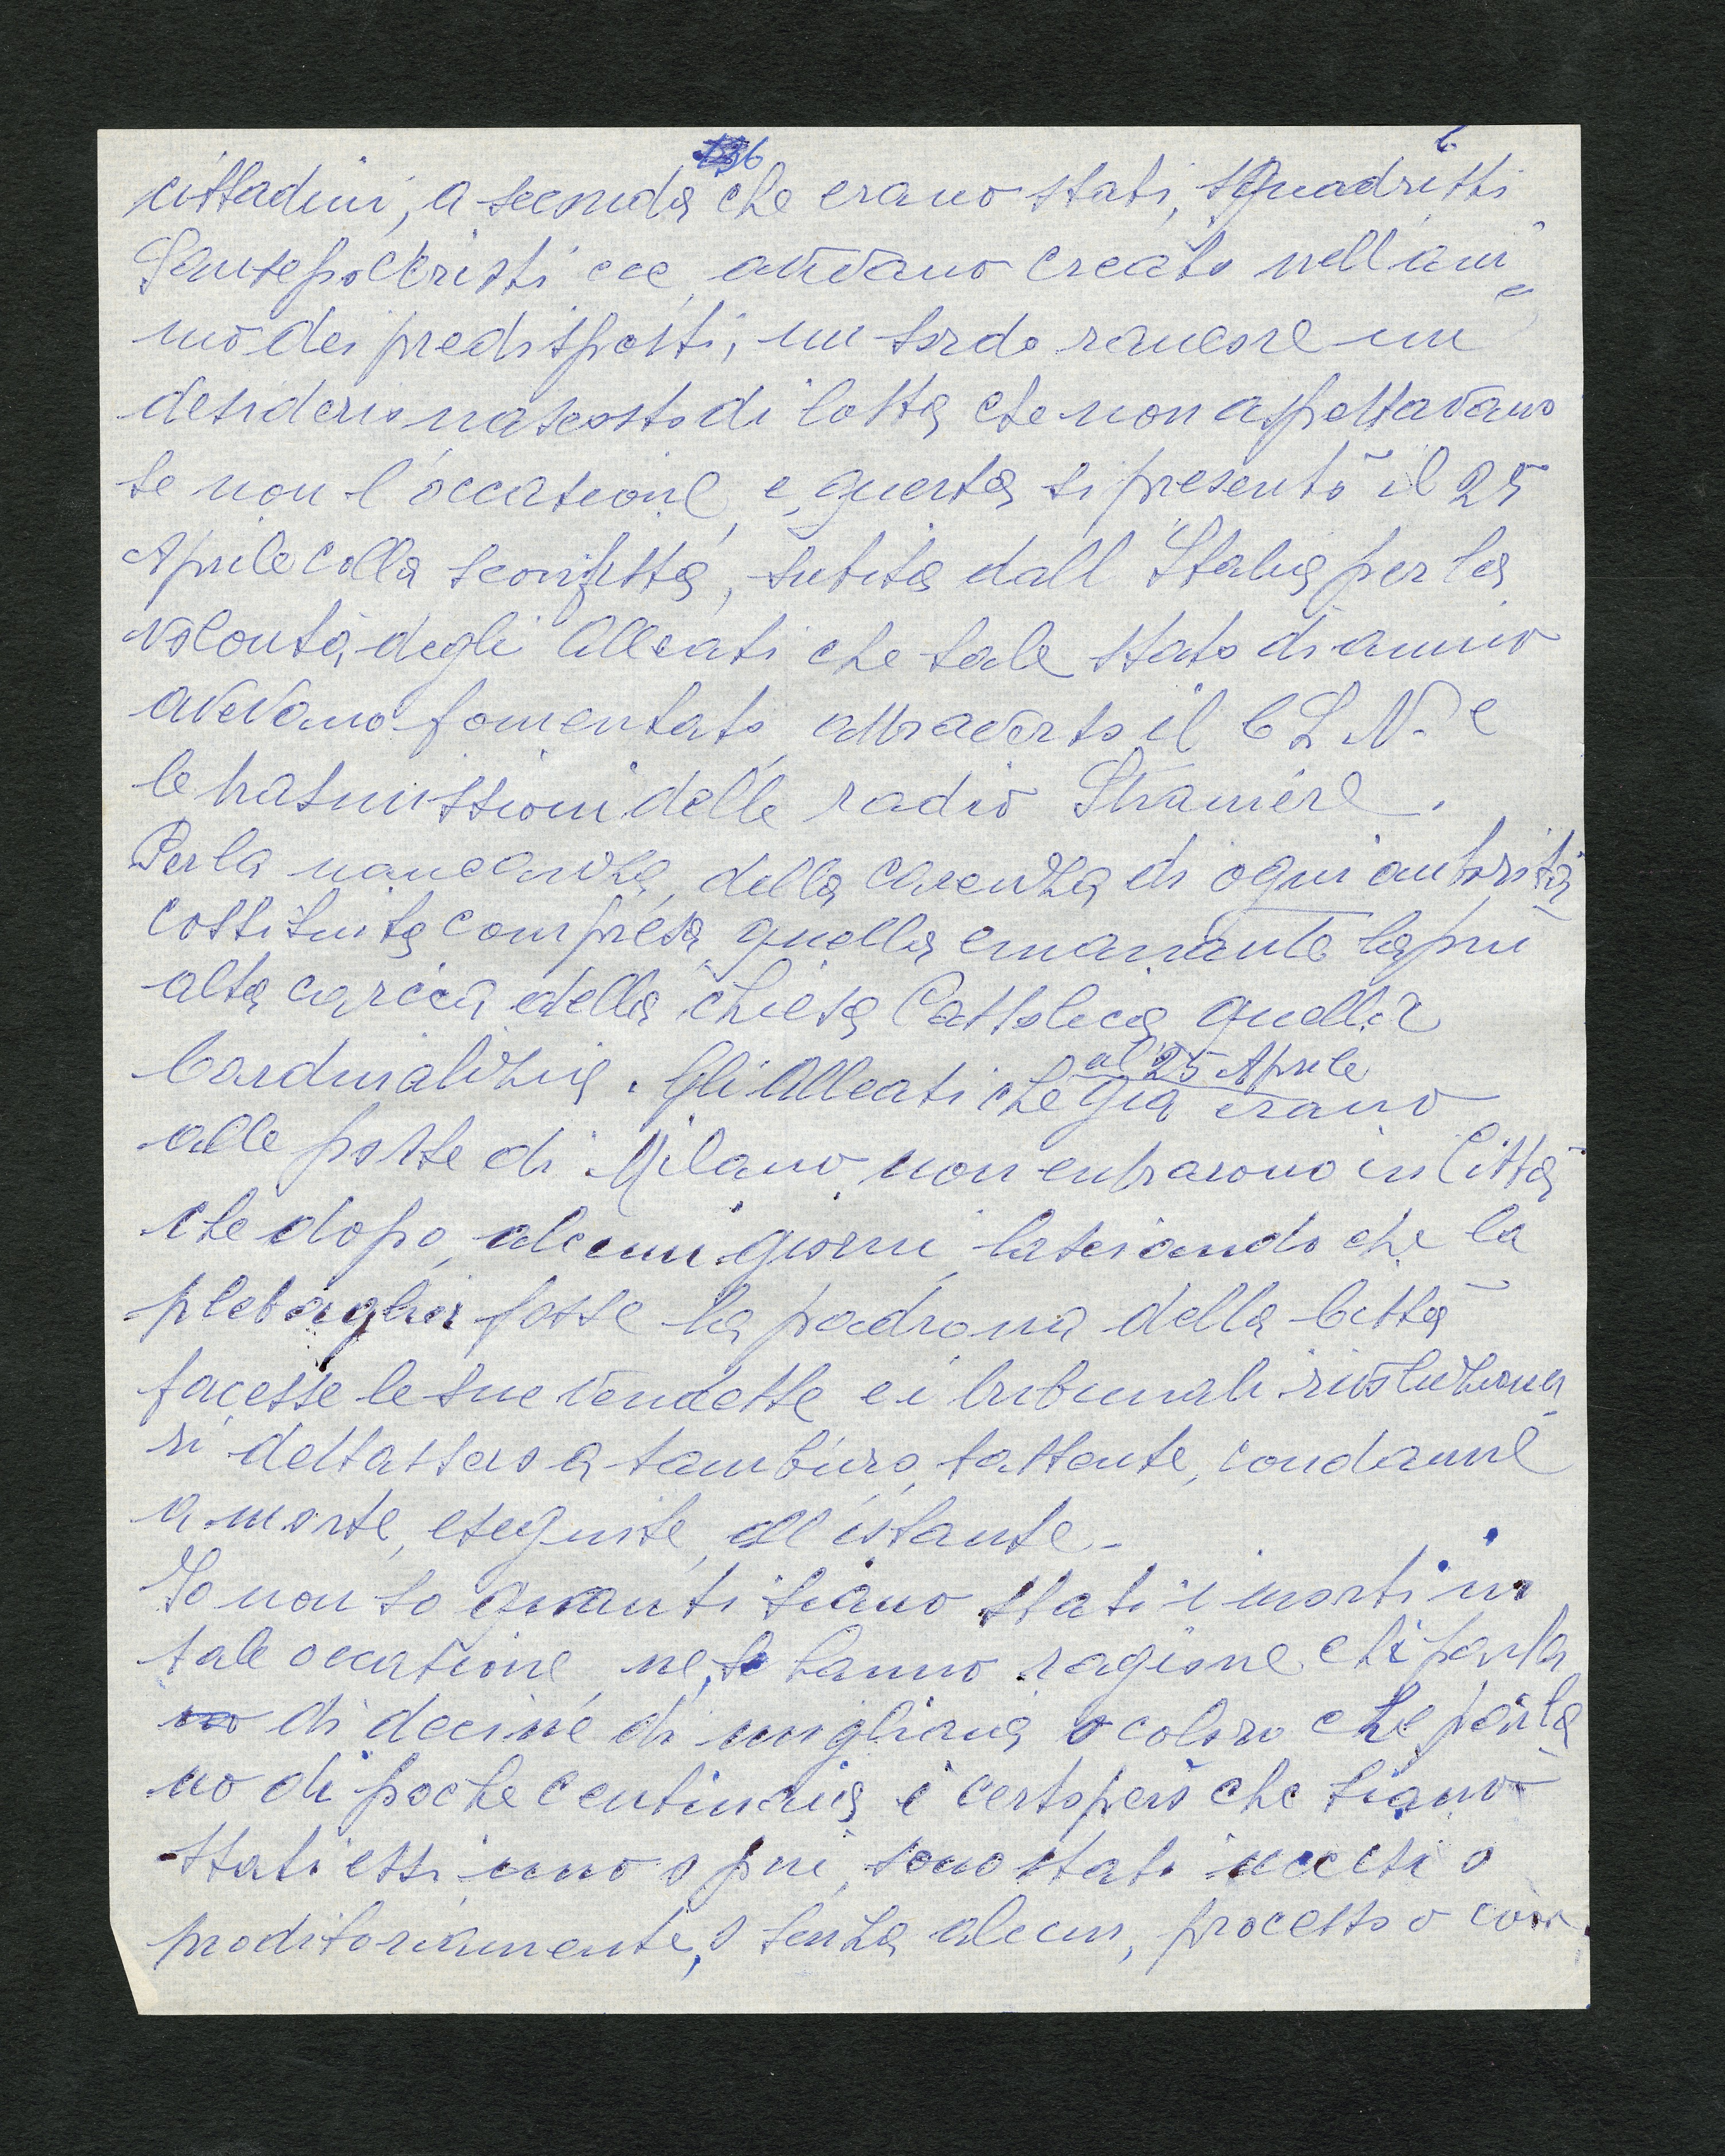 6
cittadini, a seconda che erano stati, squadristi
Sansepolcristi ecc, avevano creato nell'ani
mo dei predisposti, un sordo rancore un
desiderio nascosto di lotta che non aspettavano
se non l'occasione, e, questa si presentò il 25
Aprile colla sconfitta, subita dall Italia per la
volontà, degli Alleati che tale stato di animo
avevano fomentato, attraverso il C L N. e
le trasmissioni delle radio Straniere.
Per la mancanza, della carenza di ogni autorità
costituita compresa, quella emanante la più
alta carica della chiesa Cattolica quella
Cardinalizia. Gli Alleati che già erano
al 25 Aprile
alle porte di Milano, non entrarono in Città
che dopo, alcuni giorni, lasciando che la
plebaglia fosse la padrona della Città
facesse le sue vendette e i tribunali rivoluziona
ri dettassero a tamburo, battente, condanne
a morte, eseguite, all'istante-
Io non so quanti siano stati i morti in
tale occasione, ne, se hanno ragione chi parla
di decine di migliaia o coloro che parla
no di poche centinaia è certo però che siano
stati essi, uno o più, sono stati uccisi o
proditoriamente, o senza alcun, processo o con